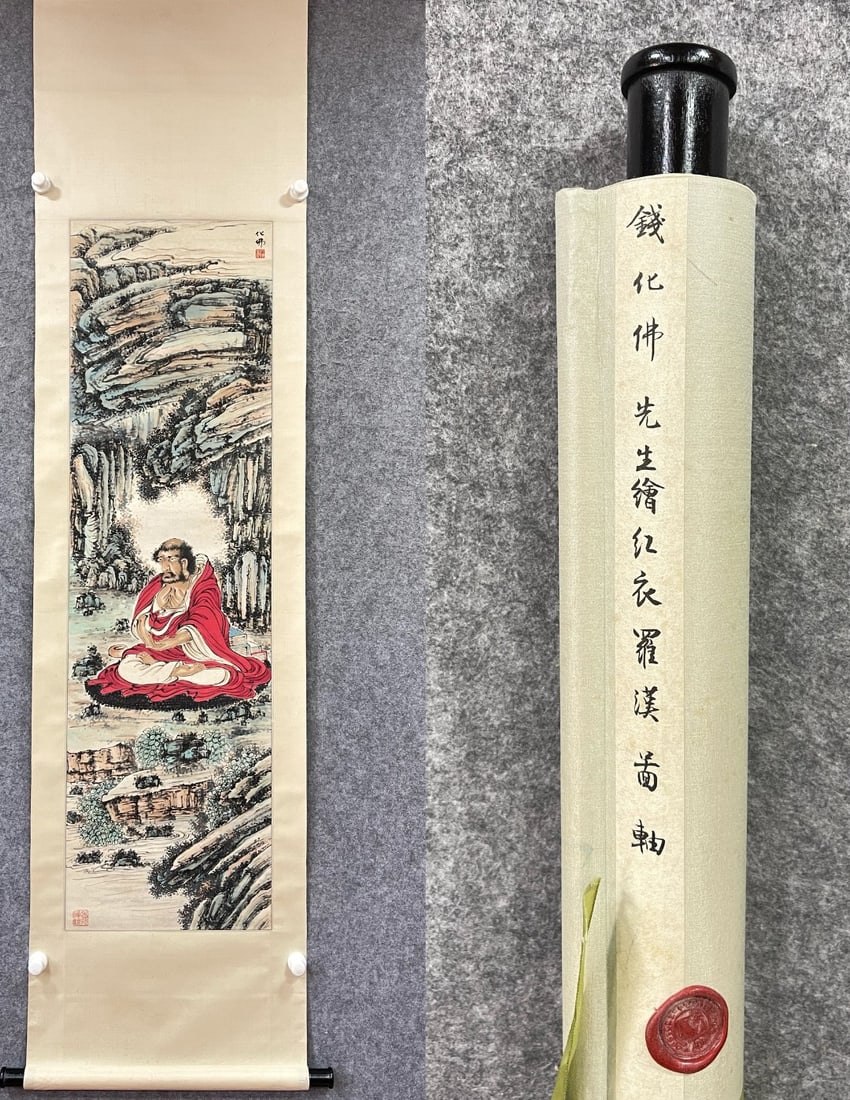 化佛
錢化佛先生繪红衣羅漢啚軸